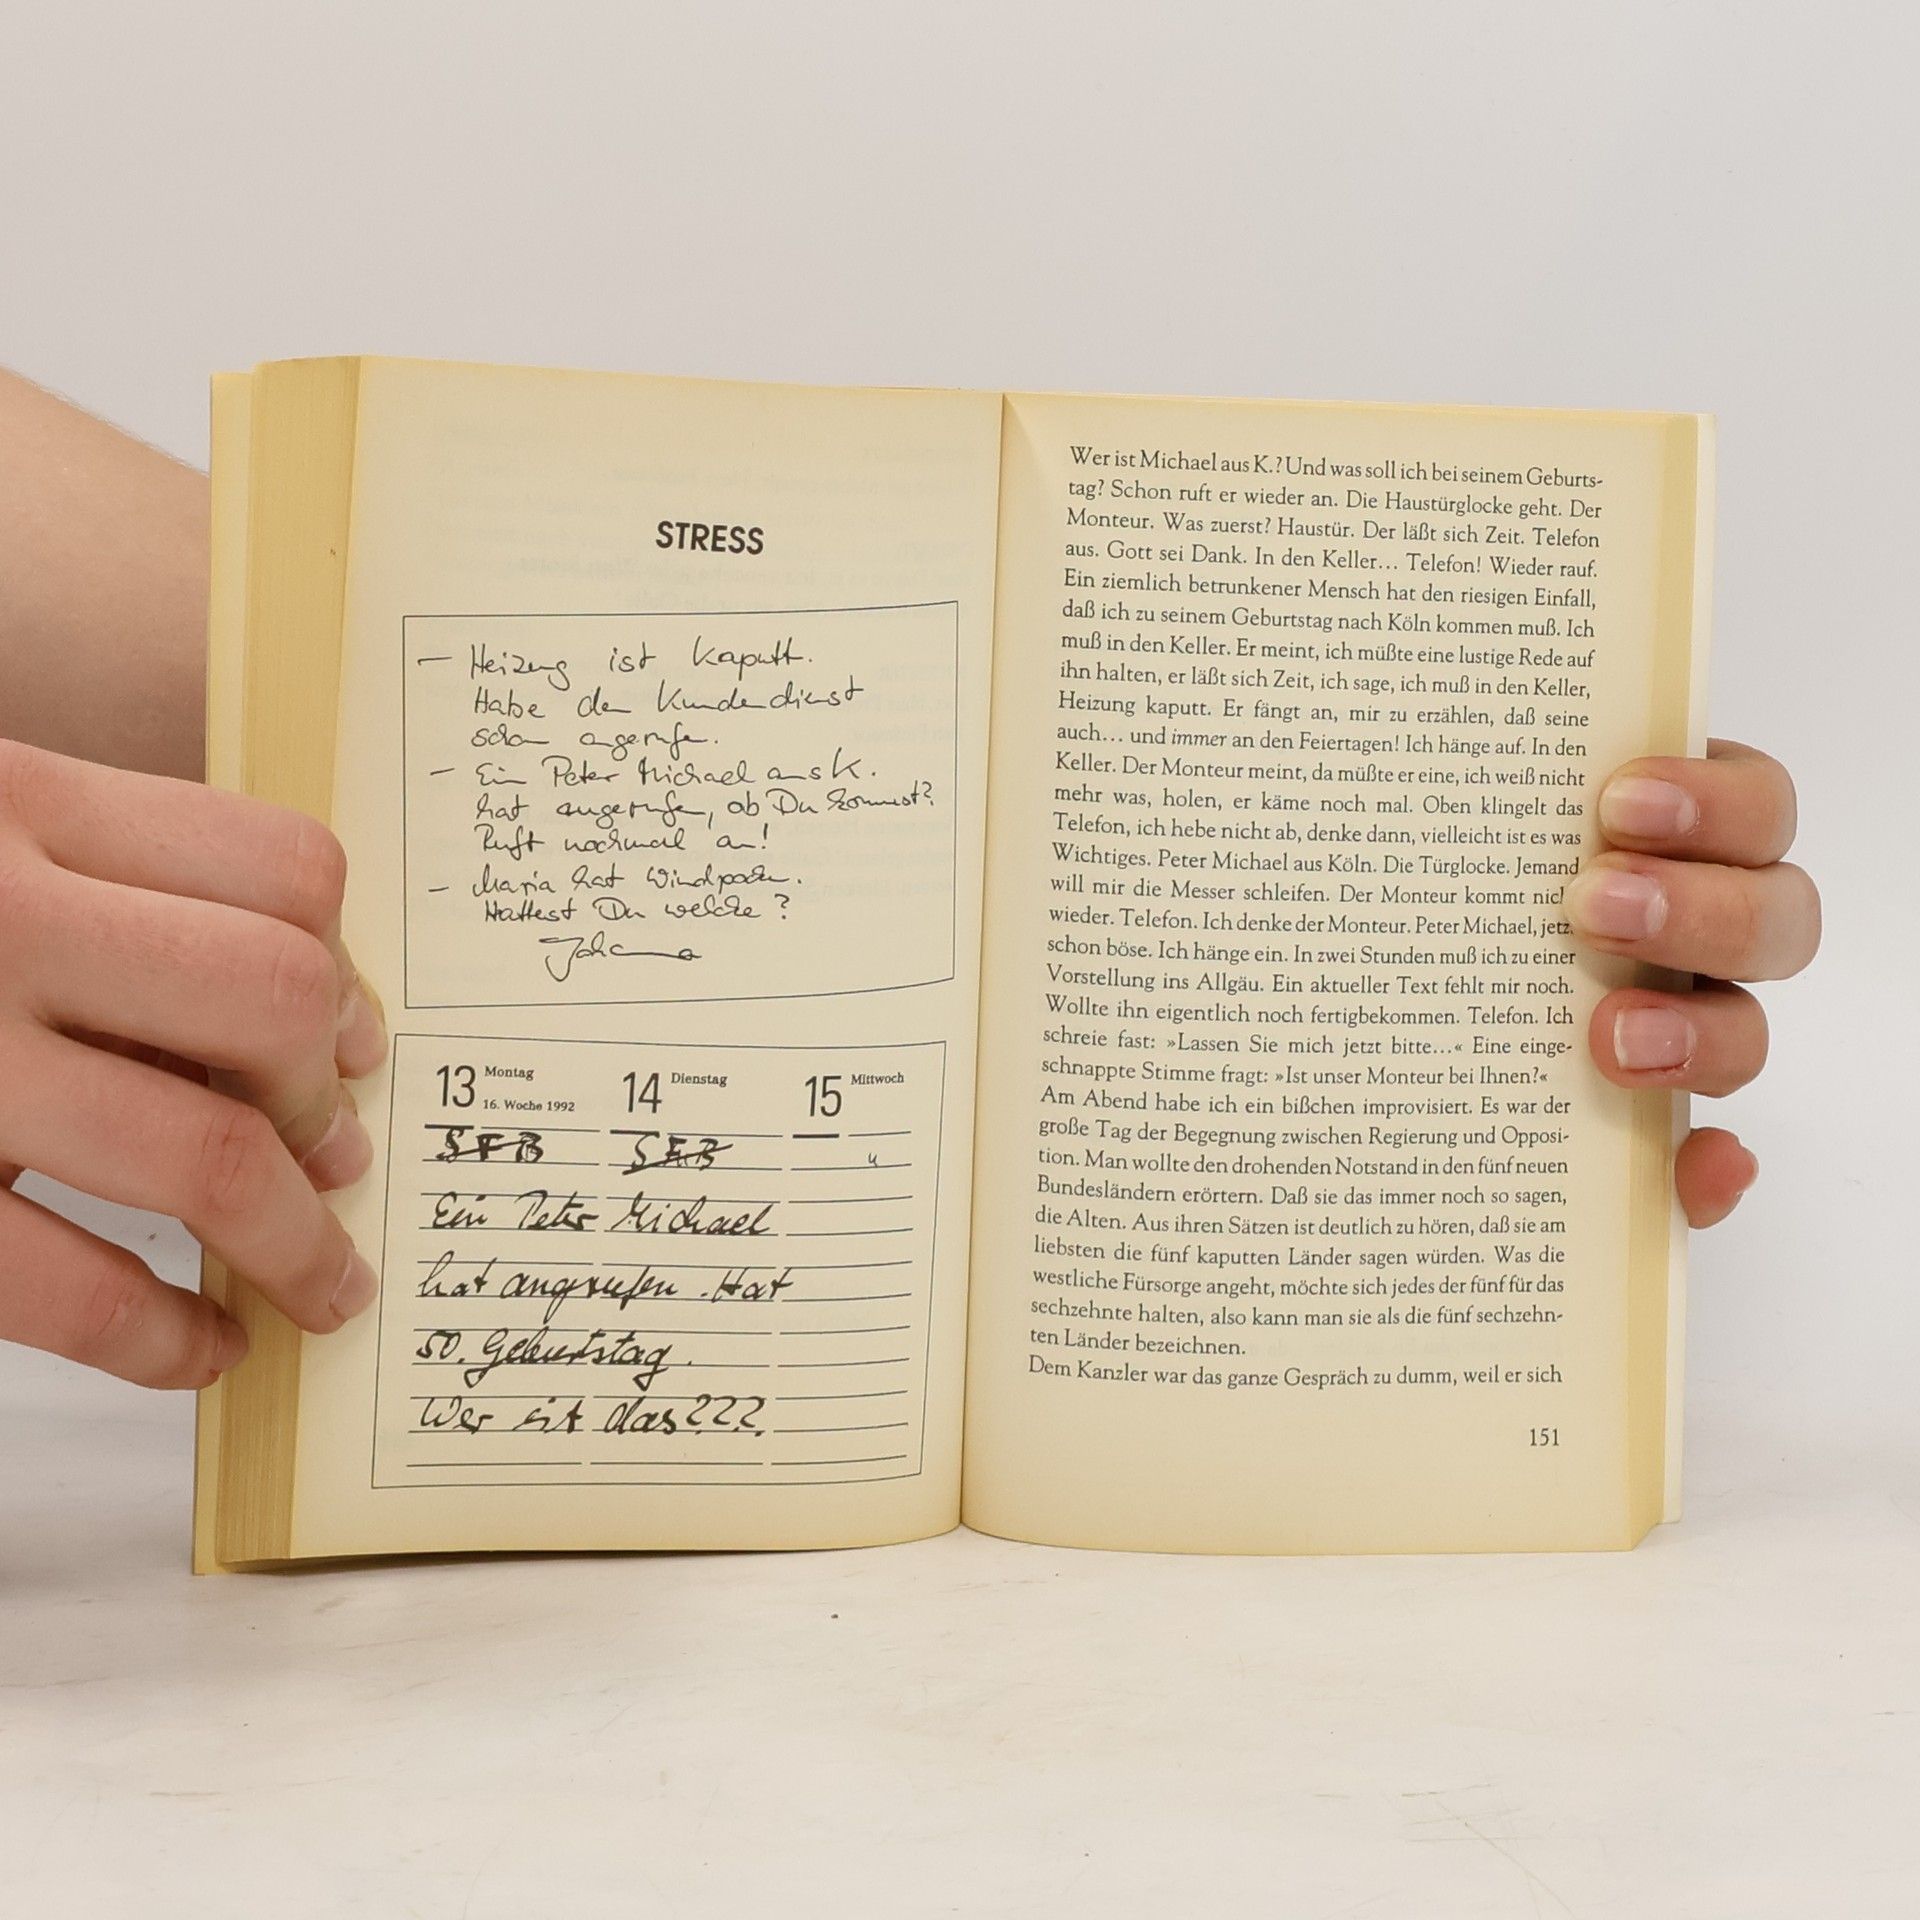 STRESS
– Heizung ist kaputt.
Habe den Kundendienst
schon angerufen.
– Ein Peter Michael aus K.
hat angerufen, ob Du kommst?
Ruft nochmal an!
– Maria hat Windpocken.
Hattest Du welche?
Johanna
13 Montag 14 Dienstag 15 Mittwoch
16. Woche 1992
SFB SFB "
Ein Peter Michael
hat angerufen. Hat
50. Geburtstag.
Wer ist das???
Wer ist Michael aus K.? Und was soll ich bei seinem Geburts-
tag? Schon ruft er wieder an. Die Haustürglocke geht. Der
Monteur. Was zuerst? Haustür. Der läßt sich Zeit. Telefon
aus. Gott sei Dank. In den Keller… Telefon! Wieder rauf.
Ein ziemlich betrunkener Mensch hat den riesigen Einfall,
daß ich zu seinem Geburtstag nach Köln kommen muß. Ich
muß in den Keller. Er meint, ich müßte eine lustige Rede auf
ihn halten, er läßt sich Zeit, ich sage, ich muß in den Keller,
Heizung kaputt. Er fängt an, mir zu erzählen, daß seine
auch… und immer an den Feiertagen! Ich hänge auf. In den
Keller. Der Monteur meint, da müßte er eine, ich weiß nicht
mehr was, holen, er käme noch mal. Oben klingelt das
Telefon, ich hebe nicht ab, denke dann, vielleicht ist es was
Wichtiges. Peter Michael aus Köln. Die Türglocke. Jemand
will mir die Messer schleifen. Der Monteur kommt nich
wieder. Telefon. Ich denke der Monteur. Peter Michael, jetz
schon böse. Ich hänge ein. In zwei Stunden muß ich zu einer
Vorstellung ins Allgäu. Ein aktueller Text fehlt mir noch.
Wollte ihn eigentlich noch fertigbekommen. Telefon. Ich
schreie fast: »Lassen Sie mich jetzt bitte…« Eine einge-
schnappte Stimme fragt: »Ist unser Monteur bei Ihnen?«
Am Abend habe ich ein bißchen improvisiert. Es war der
große Tag der Begegnung zwischen Regierung und Opposi-
tion. Man wollte den drohenden Notstand in den fünf neuen
Bundesländern erörtern. Daß sie das immer noch so sagen,
die Alten. Aus ihren Sätzen ist deutlich zu hören, daß sie am
liebsten die fünf kaputten Länder sagen würden. Was die
westliche Fürsorge angeht, möchte sich jedes der fünf für das
sechzehnte halten, also kann man sie als die fünf sechzehn-
ten Länder bezeichnen.
Dem Kanzler war das ganze Gespräch zu dumm, weil er sich
151